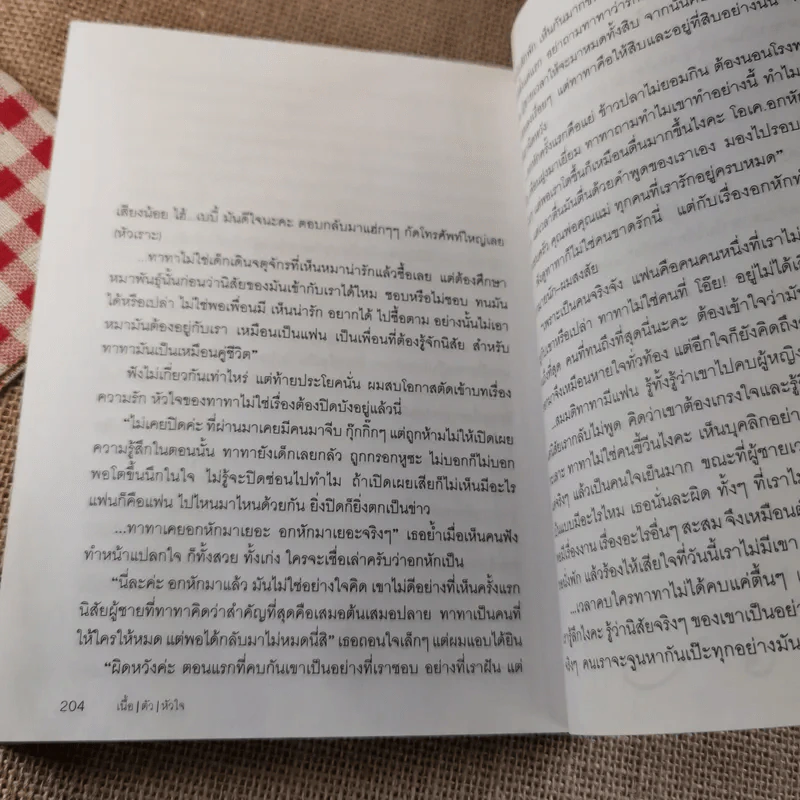 เสียงน้อย ไฮ้...เบบี้ มันดีใจนะคะ ตอบกลับมาแฮ่กๆๆ กัดโทรศัพท์ใหญ่เลย
(หัวเราะ)
...ทาทาไม่ใช่เด็กเดินจตุจักรที่เห็นหมาน่ารักแล้วซื้อเลย แต่ต้องศึกษา
หมาพันธุ์นั้นก่อนว่านิสัยของมันเข้ากับเราได้ไหม ชอบหรือไม่ชอบ ทนมัน
ได้หรือเปล่า ไม่ใช่พอเพื่อนมี เห็นน่ารัก อยากได้ ไปซื้อตาม อย่างนั้นไม่เอา
หมามันต้องอยู่กับเรา เหมือนเป็นแฟน เป็นเพื่อนที่ต้องรู้จักนิสัย สำหรับ
ทาทามันเป็นเหมือนคู่ชีวิต”
ฟังไม่เกี่ยวกันเท่าไหร่ แต่ท้ายประโยคนั่น ผมสบโอกาสตัดเข้าบทเรื่อง
ความรัก หัวใจของทาทาไม่ใช่เรื่องต้องปิดบังอยู่แล้วนี่
“ไม่เคยปิดค่ะ ที่ผ่านมาเคยมีคนมาจีบ กุ๊กกิ๊กๆ แต่ถูกห้ามไม่ให้เปิดเผย
ความรู้สึกในตอนนั้น ทาทายังเด็กเลยกลัว ถูกกรอกหูซะ ไม่บอกก็ไม่บอก
พอโตขึ้นนึกในใจ ไม่รู้จะปิดซ่อนไปทำไม ถ้าเปิดเผยเสียก็ไม่เห็นมีอะไร
แฟนก็คือแฟน ไปไหนมาไหนด้วยกัน ยิ่งปิดก็ยิ่งตกเป็นข่าว
...ทาทาเคยอกหักมาเยอะ อกหักมาเยอะจริงๆ” เธอย้ำเมื่อเห็นคนฟัง
ทำหน้าแปลกใจ ก็ทั้งสวย ทั้งเก่ง ใครจะเชื่อเล่าครับว่าอกหักเป็น
“นี่ละค่ะ อกหักมาแล้ว มันไม่ใช่อย่างใจคิด เขาไม่ดีอย่างที่เห็นครั้งแรก
นิสัยผู้ชายที่ทาทาคิดว่าสำคัญที่สุดคือเสมอต้นเสมอปลาย ทาทาเป็นคนที่
ให้ใครให้หมด แต่พอได้กลับมาไม่หมดนี่สิ” เธอถอนใจเล็กๆ แต่ผมแอบได้ยิน
“ผิดหวังค่ะ ตอนแรกที่คบกันเขาเป็นอย่างที่เราชอบ อย่างที่เราฝัน แต่
204 เนื้อ|ตัว|หัวใจ
อย่าถามทาทาว่ารัก
เวลาให้จะมาหมดทั้งสิบ จากนั้น
แต่ทาทาคือให้สิบและอยู่ที่สิบอย่างนั้น”
ครั้งแรกคือแย่ ข้าวปลาไม่ยอมกิน ต้องนอนโรง
มาเยี่ยม ทาทาถามทำไมเขาทำอย่างนี้ ทำไม
พอเราโตขึ้นก็เหมือนตื่นมากขึ้นไงคะ โอเค.อกหัก
ตื่นมันตื่นด้วยคำพูดของเราเอง มองไปรอบ
คุณพ่อคุณแม่ ทุกคนที่เรารักอยู่ครบหมด”
ทาทาก็ไม่ใช่คนขาดรักนี่ แต่กับเรื่องอกหัก
ผมสงสัย
“เพราะเป็นคนจริงจัง แฟนคือคนคนหนึ่งที่เราไม่
หรือเปล่า ทาทาไม่ใช่คนที่ โอ๊ย! อยู่ไม่ได้
คนที่ทนถึงที่สุดนี่นะคะ ต้องเข้าใจว่า
จึงเหมือนหายใจทั่วท้อง แต่อีกใจก็ยังคิดถึง
...สมมติทาทามีแฟน รู้ทั้งรู้ว่าเขาไปคบผู้หญิง
เรากลับไม่พูด คิดว่าเขาต้องเกรงใจและรู้
ทาทาไม่ใช่คนขี้วีนไงคะ เห็นบุคลิกอย่าง
จริงๆ แล้วเป็นคนใจเย็นมาก ขณะที่ผู้ชาย
แบบมีอะไรไหม เธอนั่นละผิด ทั้งๆ ที่เราไม่
เรื่องงาน เรื่องอะไรอื่นๆ สะสม จึงเหมือน
พัก แล้วร้องไห้เสียใจที่วันนี้เราไม่มีเขา
...เวลาคบใครทาทาไม่ได้คบแค่ตื้นๆ
รู้สึกไงคะ รู้ว่านิสัยจริงๆ ของเขาเป็นอย่าง
จริงๆ คนเราจะจูนหากันเป๊ะทุกอย่างมัน